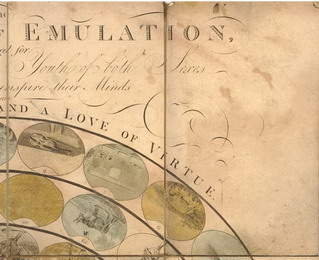 F EMULATION,
for
Youth of both Sexes
inspire their Minds
AND A LOVE OF VIRTUE.